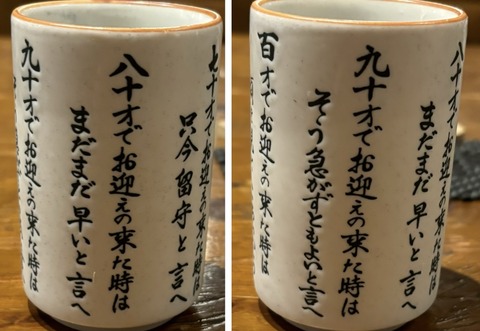 七十才でお迎えの来た時は
只今留守と言へ
八十才でお迎えの来た時は
まだまだ早いと言へ
九十才でお迎えの来た時は
八十才でお迎えの来た時は
まだまだ早いと言へ
九十才でお迎えの来た時は
そう急がずともよいと言へ
百才でお迎えの来た時は